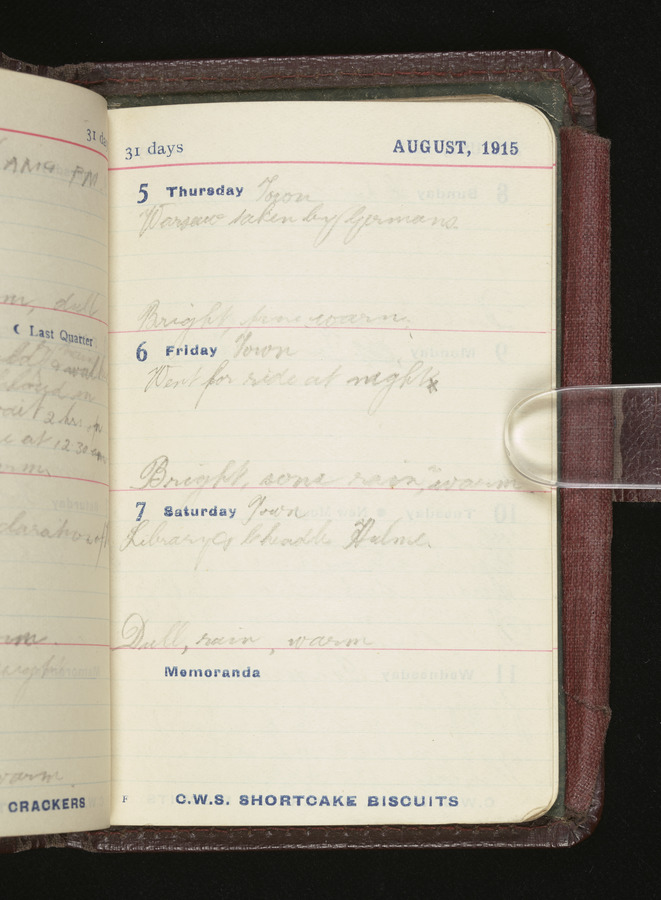 31 da
AM 9 PM
m, dull
☾ Last Quarter
wait 2 hrs
at 12 30 am
CRACKERS
31 days AUGUST, 1915
5 Thursday Town
Warsaw taken by Germans.
Bright, fine warm.
6 Friday Town
Went for ride at night x
Bright, some rain, warm
7 Saturday Town
Library Hulme.
Dull, rain, warm
Memoranda
F C.W.S. SHORTCAKE BISCUITS